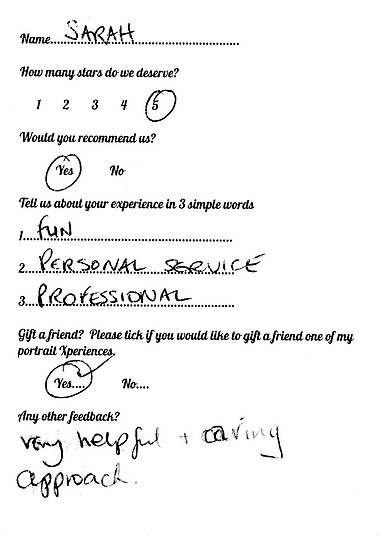 Name....SARAH
How many stars do we deserve?
1 2 3 4 5
Would you recommend us?
Yes No
Tell us about your experience in 3 simple words
1. FUN
2. PERSONAL SERVICE
3. PROFESSIONAL
Gift a friend? Please tick if you would like to gift a friend one of my
portrait Xperiences.
Yes.... No....
Any other feedback?
very helpful + caring
approach.